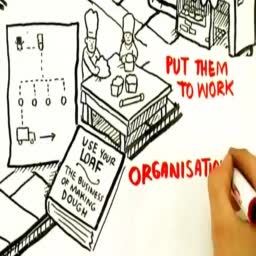 PUT THEM
TO WORK
USE YOUR
LOAF
THE BUSINESS
OF MAKING
DOUGH
ORGANISATI